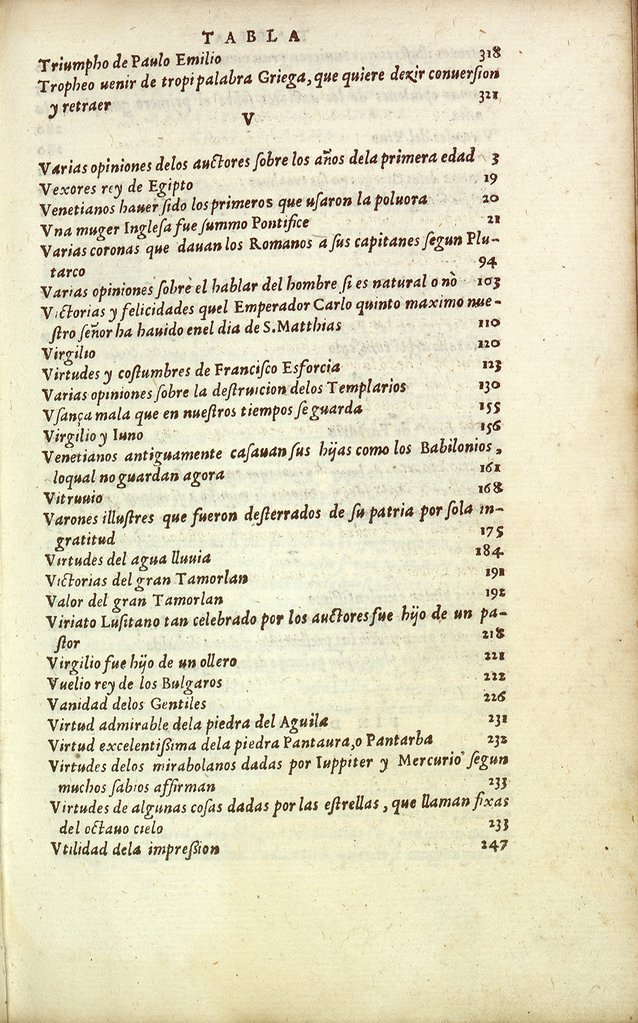 TABLA
Triumpho de Paulo Emilio 318
Tropheo uenir de tropi palabra Griega, que quiere dezir conuerſion
y retraer 321
V
Varias opiniones delos auctores ſobre los años dela primera edad 3
Vexores rey de Egipto 19
Venetianos hauer ſido los primeros que uſaron la poluora 20
Vna muger Ingleſa fue ſummo Pontifice 21
Varias coronas que dauan los Romanos a ſus capitanes ſegun Plu-
tarco 94
Varias opiniones ſobre el hablar del hombre ſi es natural o nò 103
Victorias y felicidades quel Emperador Carlo quinto maximo nue-
ſtro ſeñor ha hauido enel dia de S. Matthias 110
Virgilio 120
Virtudes y coſtumbres de Franciſco Esforcia 123
Varias opiniones ſobre la deſtruicion delos Templarios 130
Vſança mala que en nueſtros tiempos ſe guarda 155
Virgilio y Iuno 156
Venetianos antiguamente caſauan ſus hijas como los Babilonios,
loqual no guardan agora 161
Vitruuio 168
Varones illuſtres que fueron deſterrados de ſu patria por ſola in-
gratitud 175
Virtudes del agua lluuia 184
Victorias del gran Tamorlan 191
Valor del gran Tamorlan 192
Viriato Luſitano tan celebrado por los auctores fue hijo de un pa-
ſtor 218
Virgilio fue hijo de un ollero 221
Vuelio rey de los Bulgaros 222
Vanidad delos Gentiles 226
Virtud admirable dela piedra del Aguila 231
Virtud excelentißima dela piedra Pantaura, o Pantarba 232
Virtudes delos mirabolanos dadas por Iuppiter y Mercurio ſegun
muchos ſabios affirman 233
Virtudes de algunas coſas dadas por las eſtrellas, que llaman fixas
del octauo cielo 233
Vtilidad dela impreßion 247